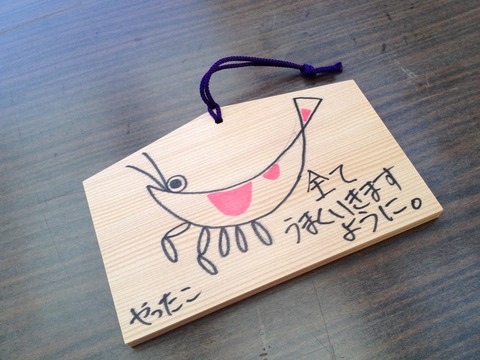 全て
うまくいきます
ように。
やったこ